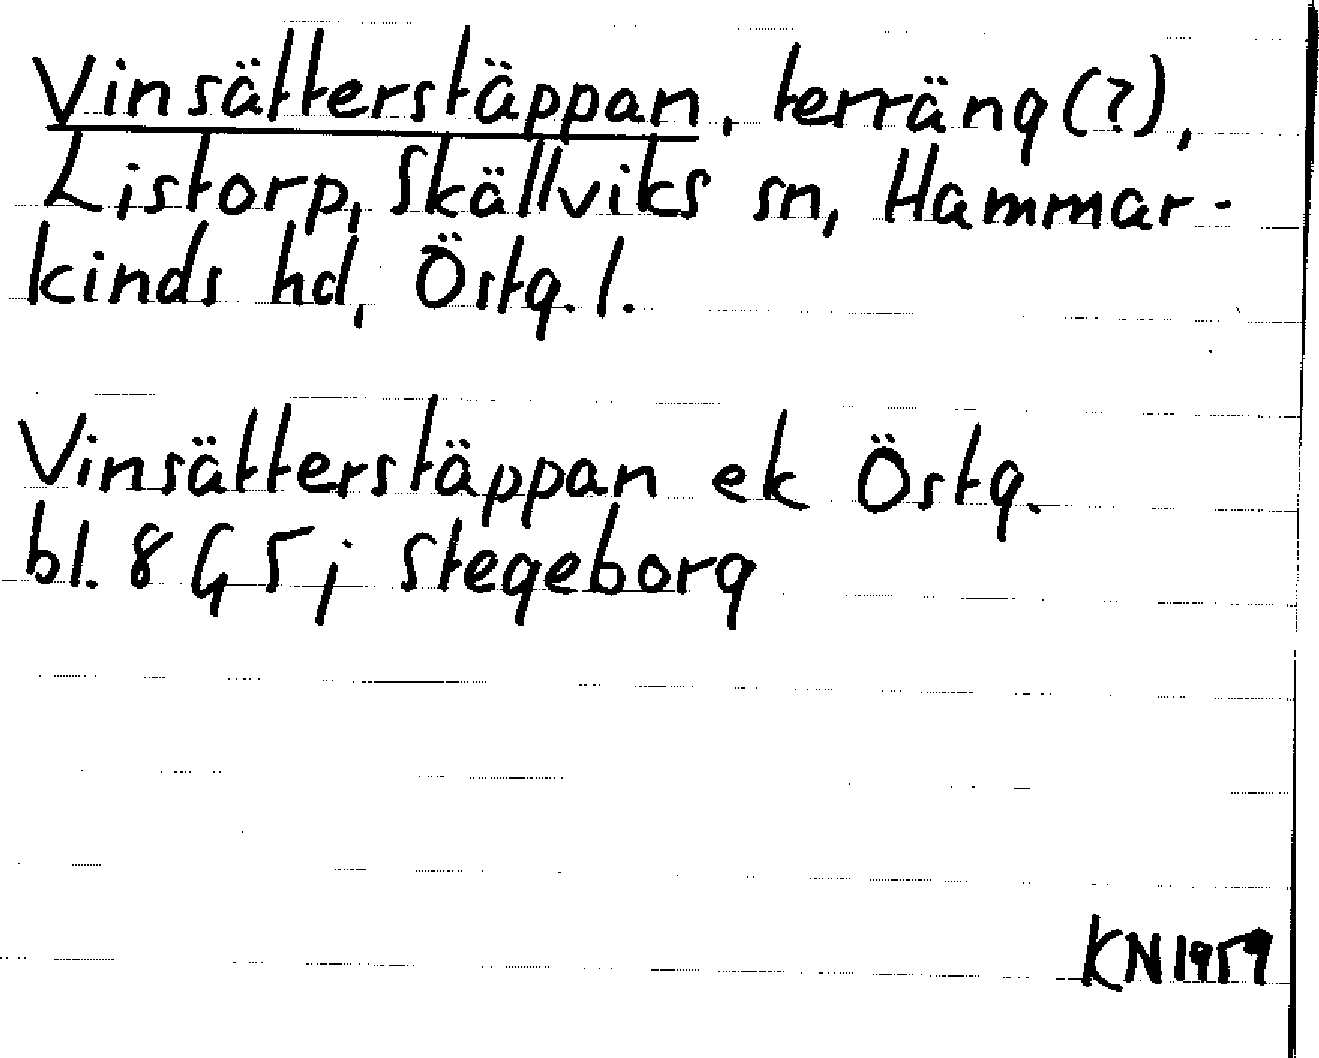 Vinsätterstäppan, terräng (?),
Listorp, Skällviks sn, Hammar-
kinds hd, Östg. l.
Vinsätterstäppan ek Östg.
bl. 8 G 5 j Stegeborg
KN 1959